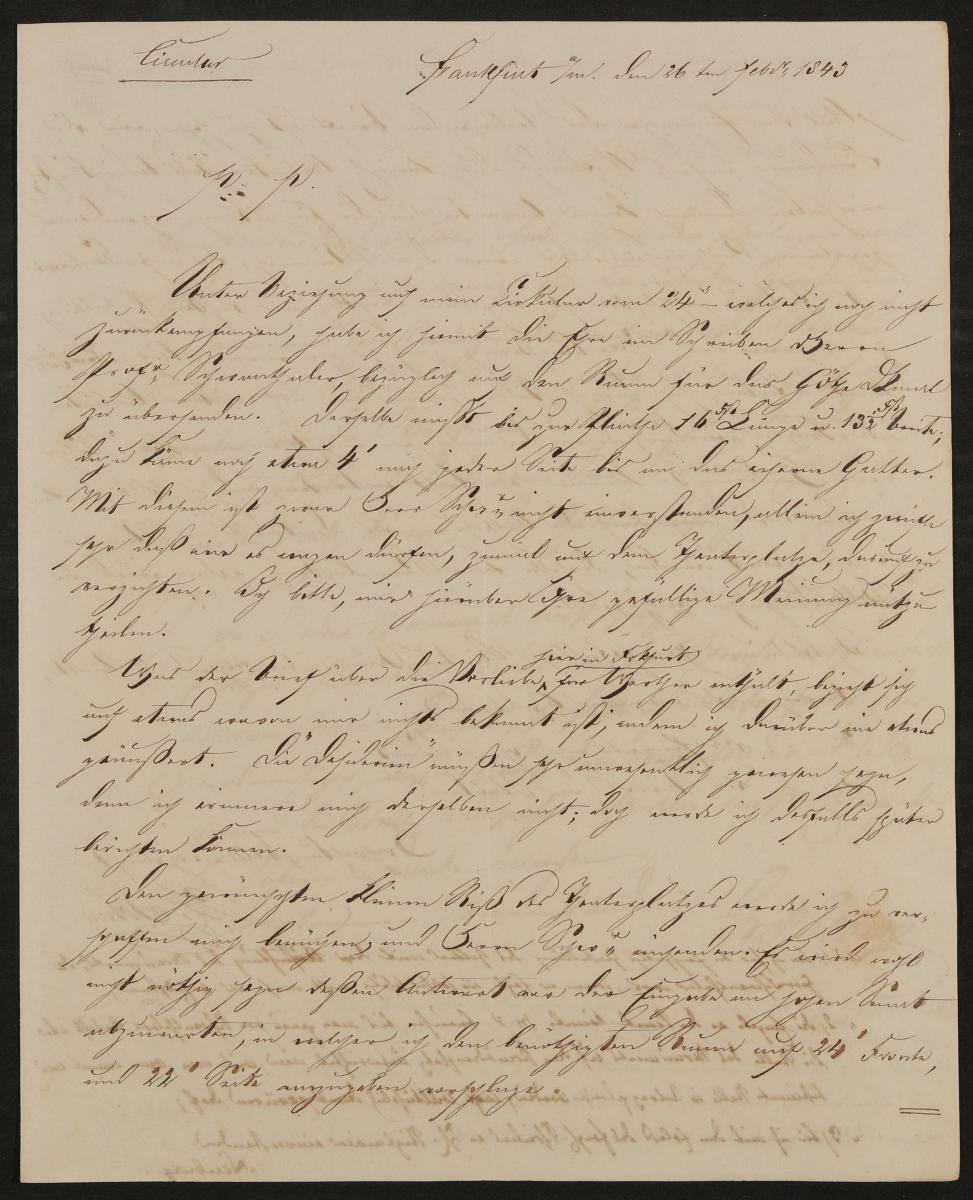 Circular
Frankfurt a/m. den 26ten Febr. 1843
P. P.
Unter Beziehung auf mein Cirkular vom 24n – welches ich noch nicht
zurückempfangen, habe ich hiemit die Ehre ein Schreiben Herrn
Profr Schwanthaler, bezüglich auf den Raum für das Göthe Denkmal
zu übersenden. Derselbe mißt bis zur Plinthe 16 Fß Länge u. 13½ Fß breite;
dazu käme noch etwa 4' auf jeder Seite bis an das eiserne Gatter.
Mit diesem ist zwar Herr Schwr nicht einverstanden, allein ich zweifle
sehr daß wir es wagen dürfen, zumal auf dem Theaterplatze, darauf zu
verzichten. Ich bitte, mir hierüber Ihre gefällige Meinung mitzu
theilen.
hier in Frkfurt
Was der Brief über die Vorliebe für Werther enthält, bezieht sich
auf etwas wovon mir nichts bekannt ist, indem ich darüber nie etwas
geäußert. Die "Desiderien" müßen sehr unwesentlich gewesen seyn,
denn ich erinnere mich derselben nicht; doch werde ich desfalls später
berichten können.
Den gewünschten kleinen Riß des Theaterplatzes werde ich zu ver-
schaffen mich bemühen, und Herrn Schwr einsenden. Es wird wohl
nicht nöthig seyn deßen Antwort vor der Eingabe an hohen Senat
abzuwarten, in welcher ich den benöthigten Raum auf 24' Fronte,
und 22' Seite anzugeben vorschlage